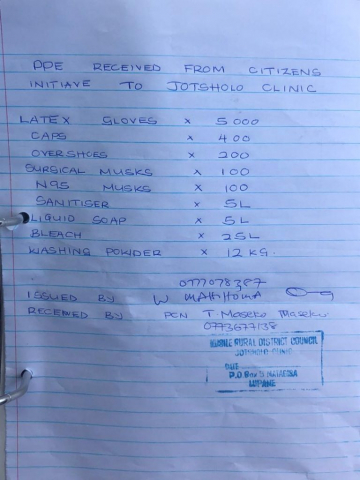 PPE RECEIVED FROM CITIZENS
INITIAVE TO JOTSHOLO CLINIC
LATEX GLOVES x 5000
CAPS x 400
OVERSHOES x 200
SURGICAL MUSKS x 100
N95 MUSKS x 100
SANITISER x 5L
LIQUID SOAP x 5L
BLEACH x 25L
WASHING POWDER x 12 KG.
0777078387
ISSUED BY W
RECEIVED BY PCN T. Maseko Maseko
0773677138
RURAL DISTRICT COUNCIL
JOTSHOLO CLINIC
DATE
P.O. Box 5
LUPANE